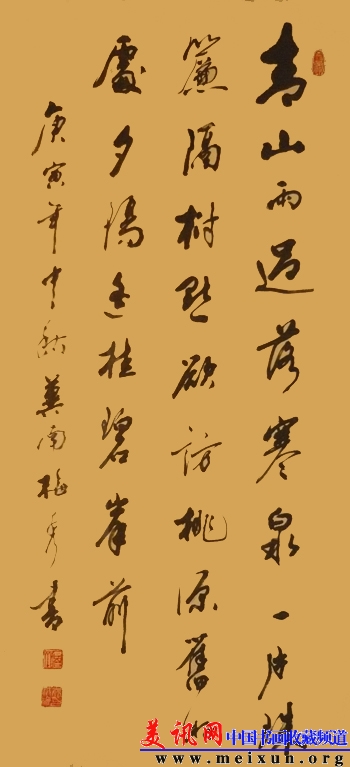 青山雨過落寒泉一片珠
簾隔樹懸欲訪桃源舊
處夕陽遥挂碧峯前
庚寅年中秋冀南梅秀書
美讯网 中国书画收藏频道
www.meixun.org